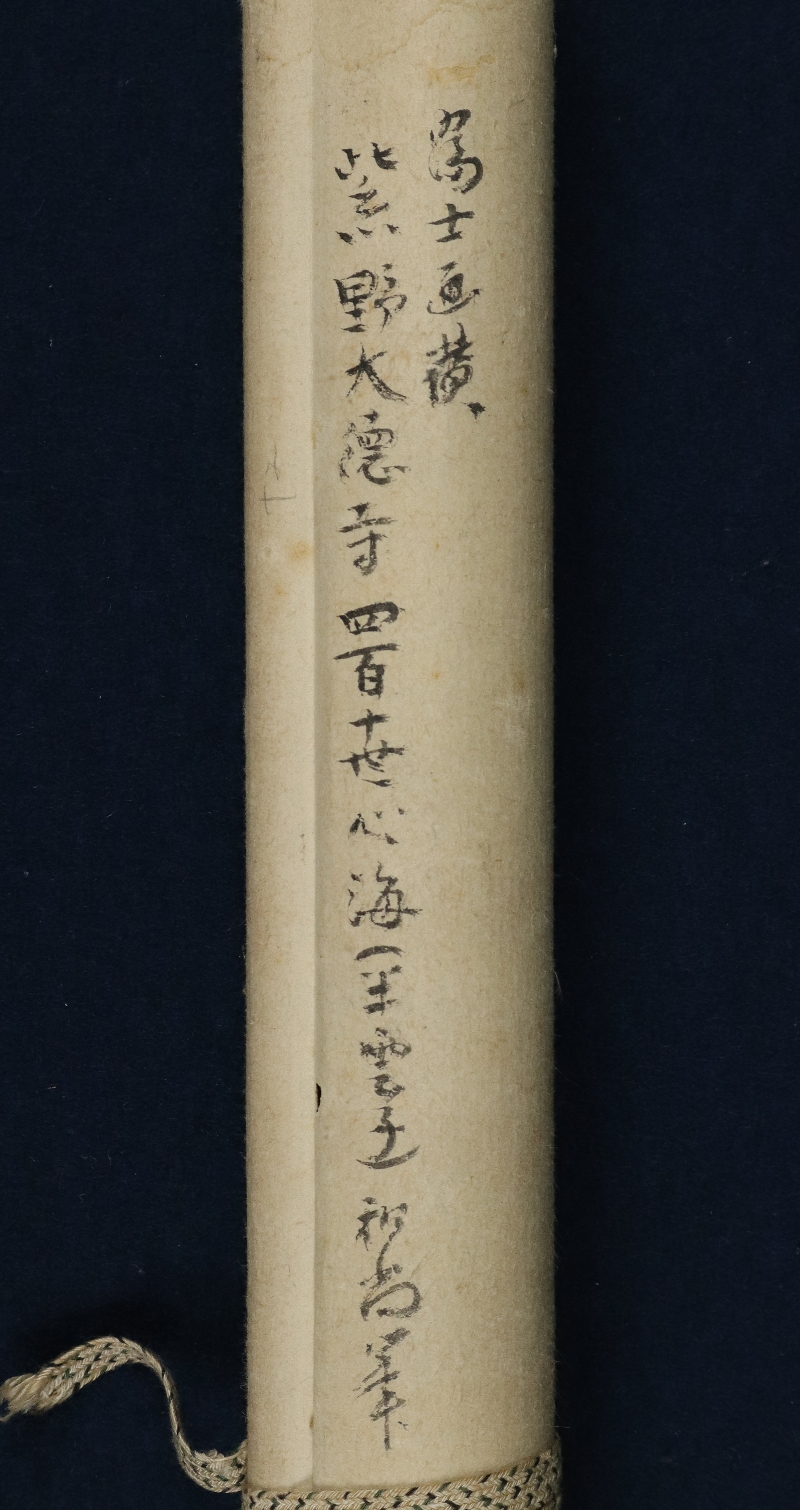 富士画賛
紫野大徳寺四百十世心海一半雲子和尚筆